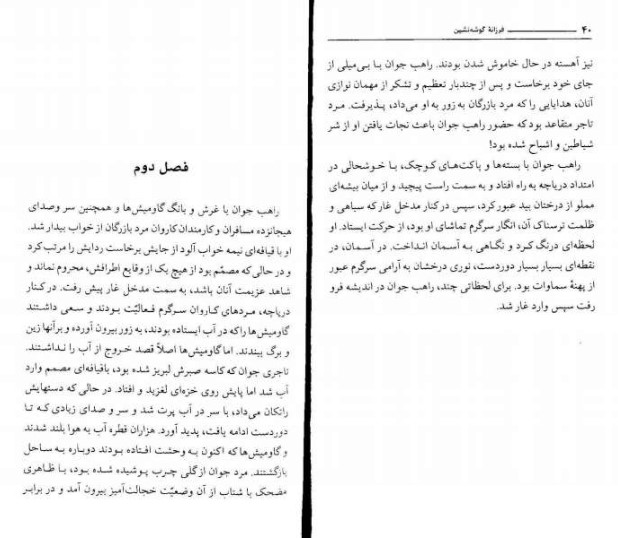 ۴۰ فرزانهٔ گوشه‌نشین
نیز آهسته در حال خاموش شدن بودند. راهب جوان با بی‌میلی از
جای خود برخاست و پس از چندبار تعظیم و تشکر از مهمان نوازی
آنان، هدایایی را که مرد بازرگان به زور به او می‌داد، پذیرفت. مرد
تاجر متقاعد بود که حضور راهب جوان باعث نجات یافتن او از شر
شیاطین و اشباح شده بود!
راهب جوان با بسته‌ها و پاکت‌های کوچک، با خوشحالی در
امتداد دریاچه به راه افتاد و به سمت راست پیچید و از میان بیشه‌ای
مملو از درختان بید عبور کرد، سپس در کنار مدخل غار که سیاهی و
ظلمت ترسناک آن، انگار سرگرم تماشای او بود، از حرکت ایستاد. او
لحظه‌ای درنگ کرد و نگاهی به آسمان انداخت. در آسمان، در
نقطه‌ای بسیار بسیار دوردست، نوری درخشان به آرامی سرگرم عبور
از پهنهٔ سماوات بود. برای لحظاتی چند، راهب جوان در اندیشه فرو
رفت سپس وارد غار شد.
فصل دوم
راهب جوان با غرش و بانگ گاومیش‌ها و همچنین سر و صدای
هیجانزده مسافران و کارمندان کاروان مرد بازرگان از خواب بیدار شد.
او با قیافه‌ای نیمه خواب آلود از جایش برخاست ردایش را مرتب کرد
و در حالی که مصمّم بود از هیچ یک از وقایع اطرافش، محروم نماند و
شاهد عزیمت آنان باشد، به سمت مدخل غار پیش رفت. در کنار
دریاچه، مردهای کاروان سرگرم فعالیّت بودند و سعی داشتند
گاومیش‌ها را که در آب ایستاده بودند، به زور بیرون آورده و برآنها زین
و برگ ببندند. اما گاومیش‌ها اصلاً قصد خروج از آب را نداشتند.
تاجری جوان که کاسه صبرش لبریز شده بود، باقیافه‌ای مصمم وارد
آب شد اما پایش روی خزه‌ای لغزید و افتاد. در حالی که دستهایش
راتکان می‌داد، با سر در آب پرت شد و سر و صدای زیادی که تا
دوردست ادامه یافت، پدید آورد. هزاران قطره آب به هوا بلند شدند
و گاومیش‌ها که اکنون به وحشت افتاده بودند دوباره به ساحل
بازگشتند. مرد جوان ازگلی چرب پوشیده شده بود، با ظاهری
مضحک با شتاب از آن وضعیّت خجالت‌آمیز بیرون آمد و در برابر